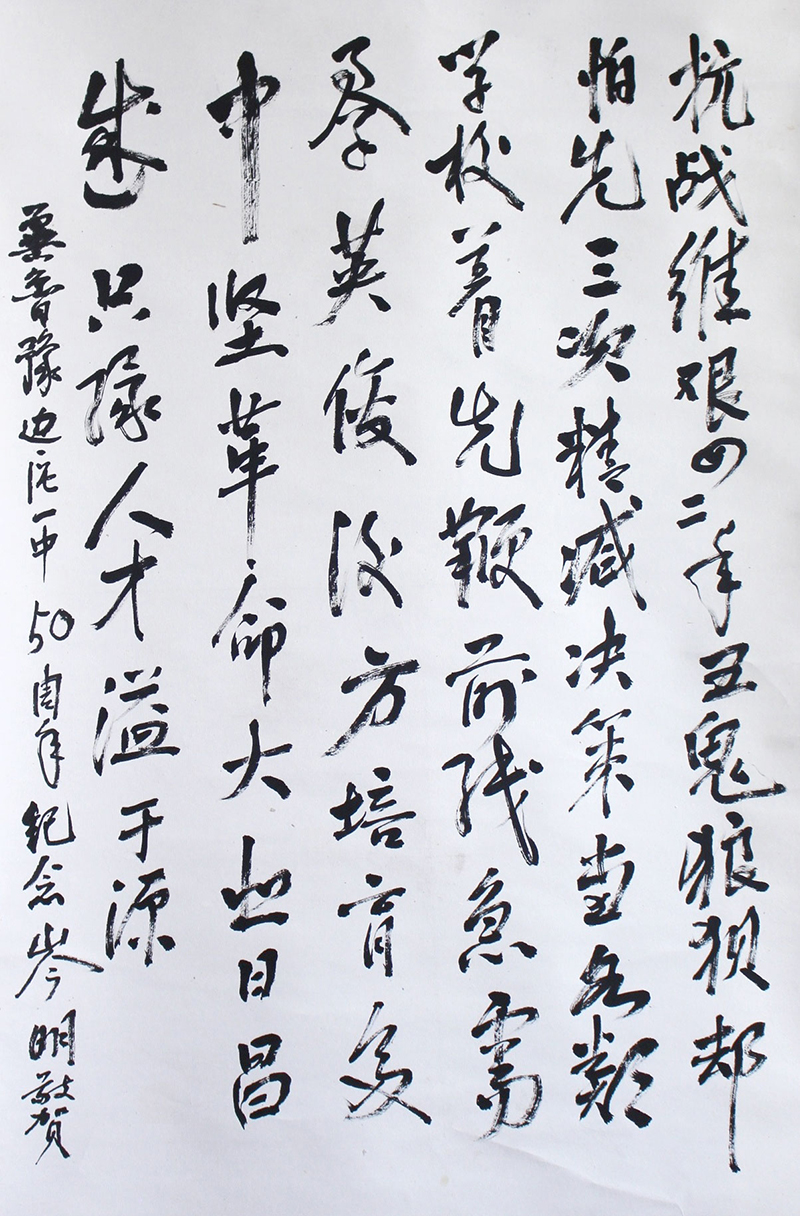 抗战维艰四二年丑鬼狼狈却
怕先三次精减决策当各类
学校着先鞭前线急需
孕英俊后方培育多
中坚革命大业日昌
盛只缘人才溢于源
冀鲁豫边区一中50周年纪念岑明敬贺